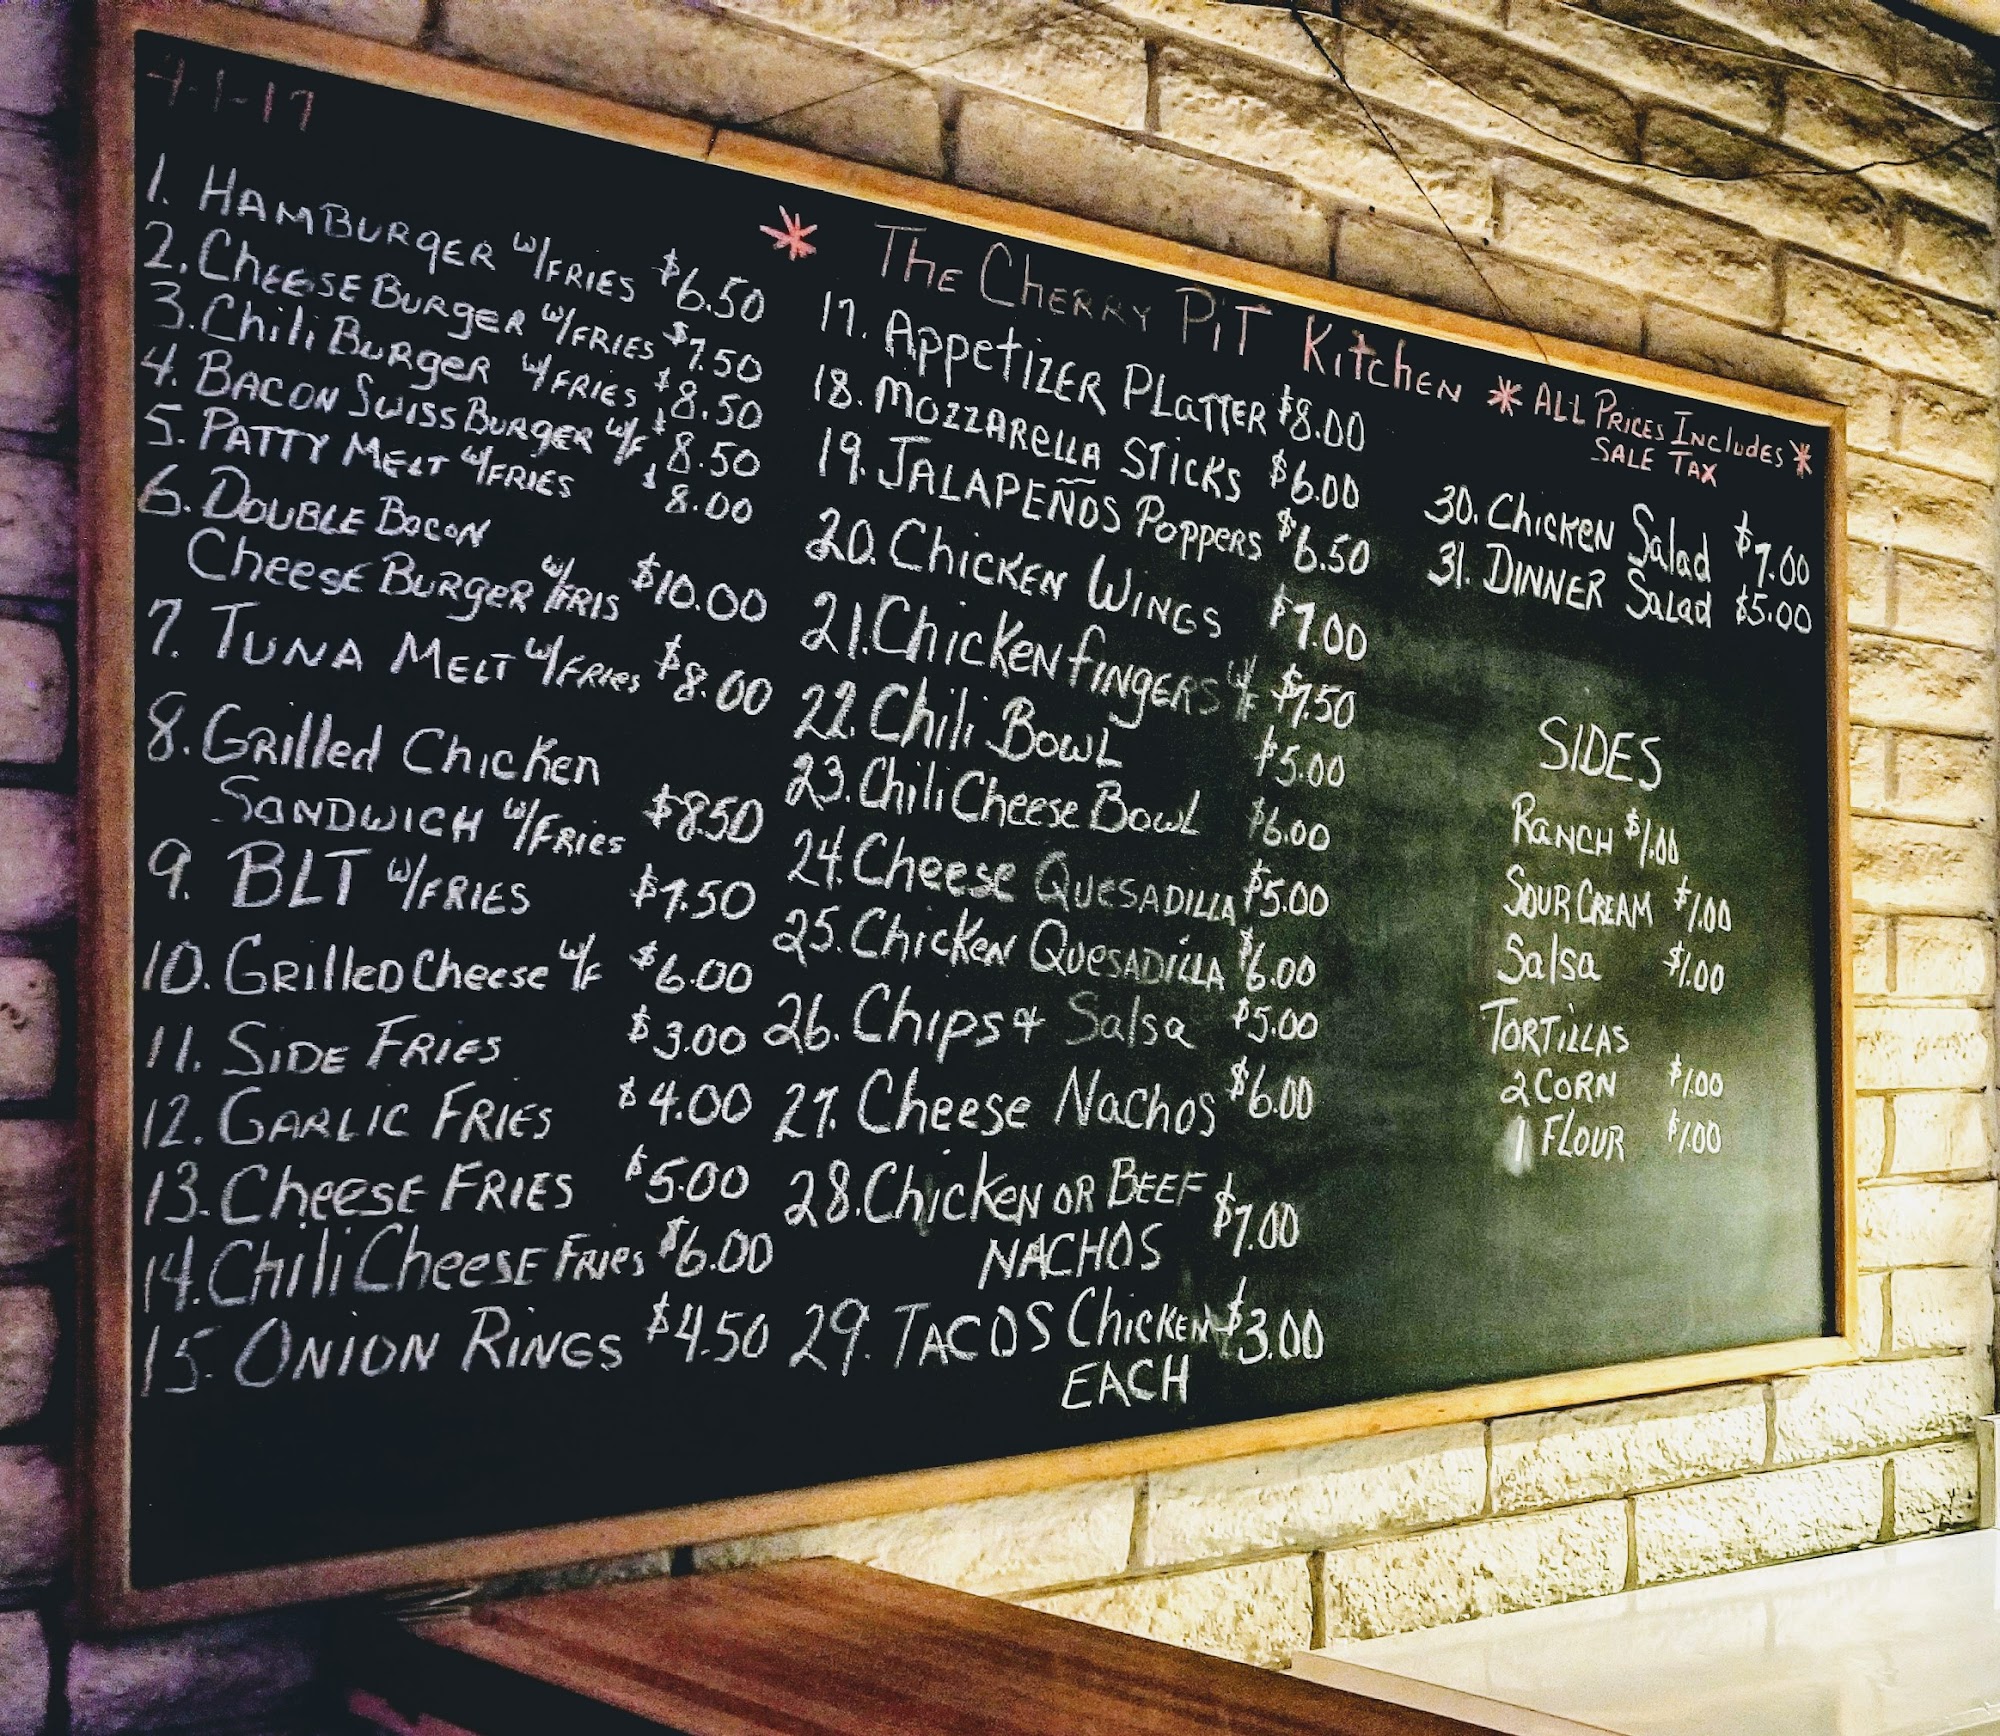 4-1-17
1. HAMBURGER W/FRIES $6.50
2. CHEESE BURGER W/FRIES $7.50
3. Chili BURGER W/FRIES $8.50
4. BACON SWISS BURGER W/F $8.50
5. PATTY MELT W/FRIES $8.00
6. DOUBLE BACON
CHEESE BURGER W/FRIS $10.00
7. TUNA MELT W/FRIES $8.00
8. Grilled Chicken
SANDWICH W/Fries $8.50
9. BLT W/FRIES $7.50
10. GRILLED Cheese W/F $6.00
11. SIDE FRIES $3.00
12. GARLIC FRIES $4.00
13. CHEESE FRIES $5.00
14. Chili CHEESE FRIES $6.00
15. ONION RINGS $4.50
* THE CHERRY PIT KITCHEN * ALL PRICES INCLUDES *
SALE TAX
17. APPETIZER PLATTER $8.00
18. MOZZARELLA STICKS $6.00
19. JALAPEÑOS POPPERS $6.50
20. CHICKEN WINGS $7.00
21. CHICKEN FINGERS W/F $7.50
22. Chili BOWL $5.00
23. Chili Cheese BOWL $6.00
24. Cheese QUESADILLA $5.00
25. Chicken QUESADILLA $6.00
26. CHIPS + Salsa $5.00
27. Cheese Nachos $6.00
28. Chicken OR BEEF
NACHOS $7.00
29. TACOS CHICKEN $3.00
EACH
30. Chicken Salad $7.00
31. DINNER Salad $5.00
SIDES
RANCH $1.00
SOUR CREAM $1.00
Salsa $1.00
TORTILLAS
2 CORN $1.00
1 FLOUR $1.00